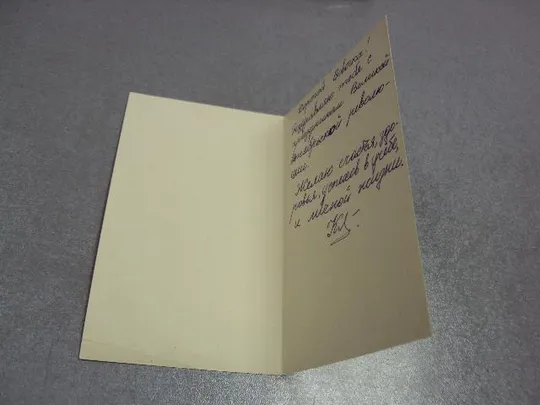 Дорогой Вовочка!
Поздравляю тебя с
праздником Великой
Октябрьской револю-
ции.
Желаю счастья, здо-
ровья, успехов в учебе,
и личной жизни.